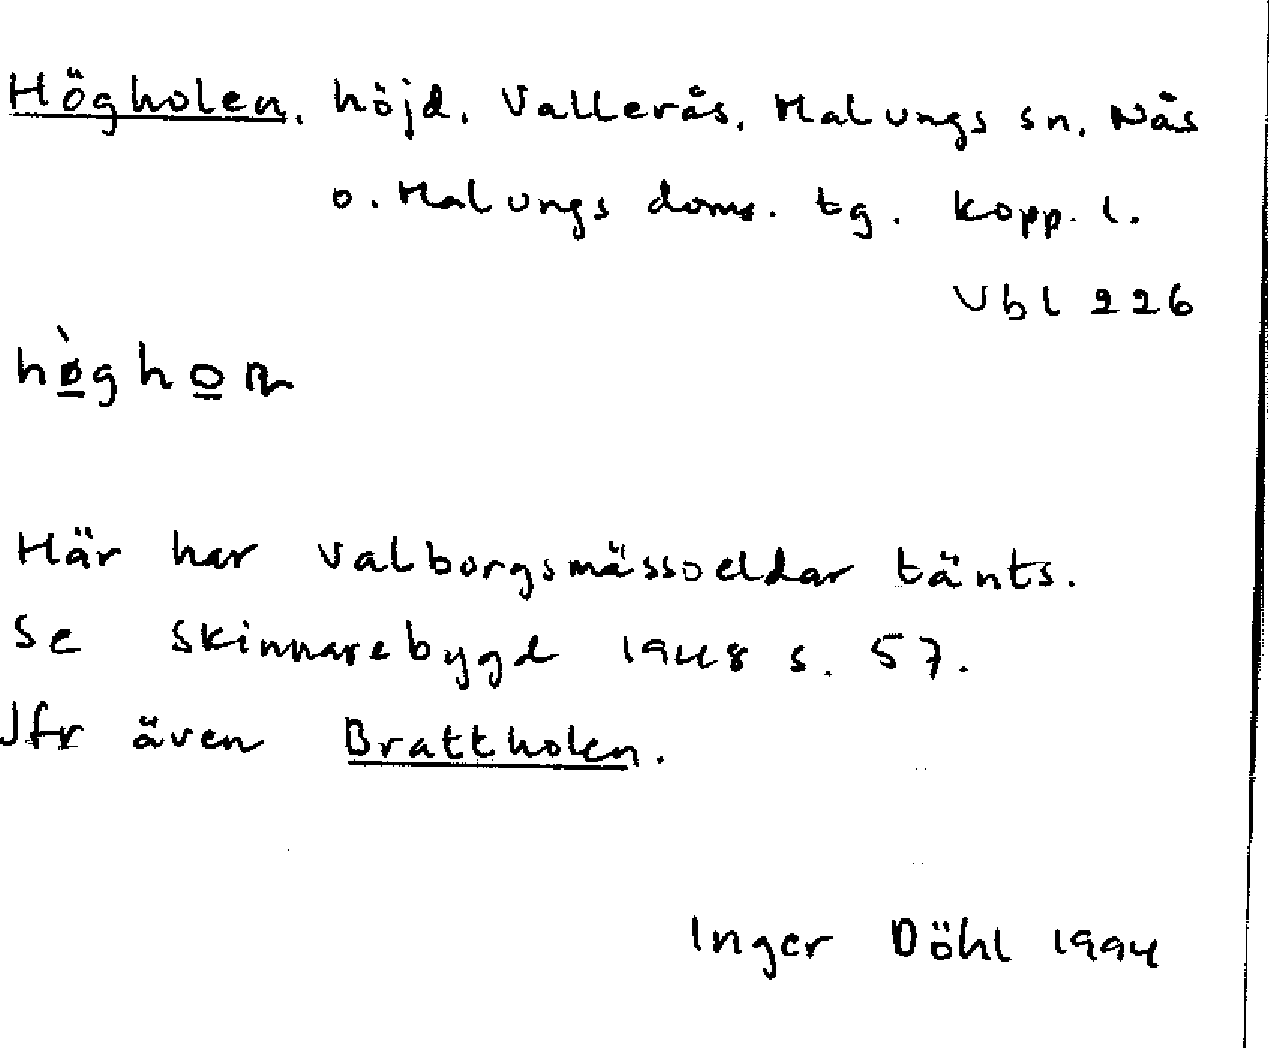 Högholen, höjd, Vallerås, Malungs sn, Nås
o. Malungs doms. tg. Kopp. l.
Vbl 226
Här har valborgsmässoeldar tänts.
Se Skinnarebygd 1948 s. 57.
Jfr även Brattholen.
Inger Döhl 1994